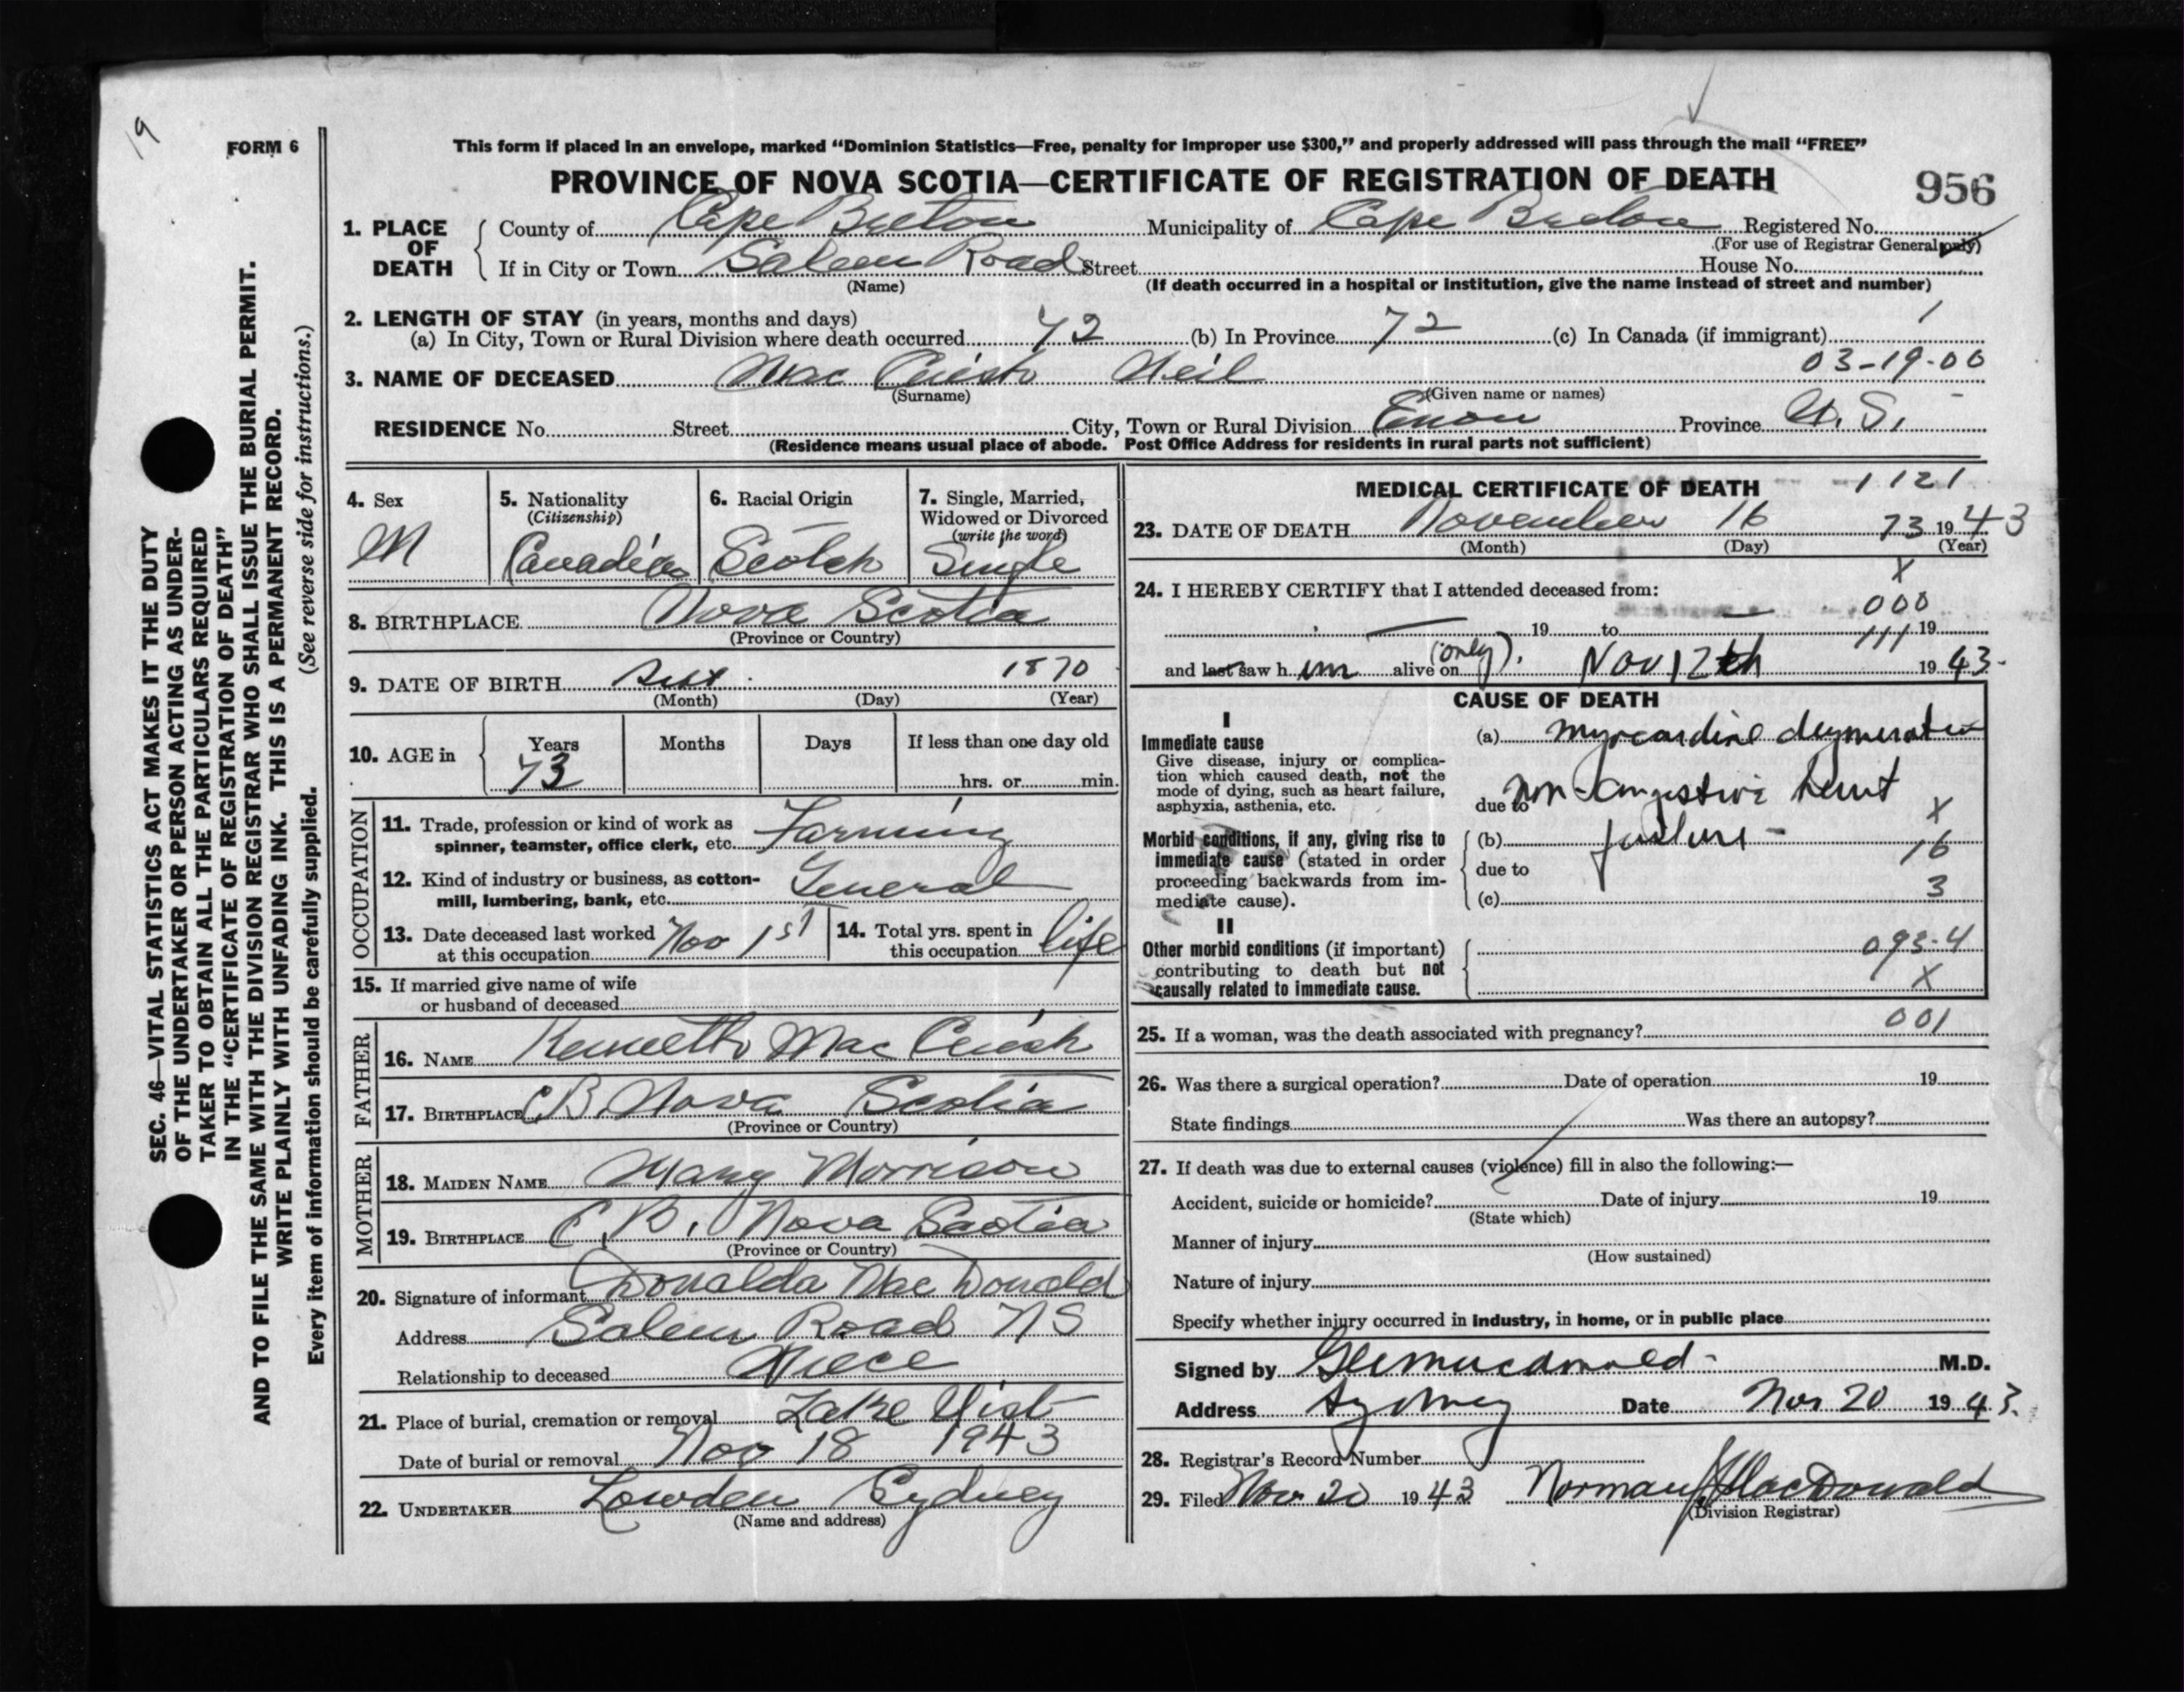 19
FORM 6
This form if placed in an envelope, marked “Dominion Statistics—Free, penalty for improper use $300,” and properly addressed will pass through the mail “FREE”
PROVINCE OF NOVA SCOTIA—CERTIFICATE OF REGISTRATION OF DEATH
956
1. PLACE OF DEATH
County of Cape Breton Municipality of Cape Breton Registered No.
(For use of Registrar General only)
If in City or Town Salem Road Street House No.
(Name) (If death occurred in a hospital or institution, give the name instead of street and number)
2. LENGTH OF STAY (in years, months and days)
(a) In City, Town or Rural Division where death occurred 72 (b) In Province 72 (c) In Canada (if immigrant)
03-19-00
3. NAME OF DECEASED Mac Neil
(Surname) (Given name or names)
RESIDENCE No. Street City, Town or Rural Division Enon Province N. S.
(Residence means usual place of abode. Post Office Address for residents in rural parts not sufficient)
4. Sex
M
5. Nationality
(Citizenship)
Canadian
6. Racial Origin
Scotch
7. Single, Married,
Widowed or Divorced
(write the word)
Single
8. BIRTHPLACE Nova Scotia
(Province or Country)
9. DATE OF BIRTH Sept 1870
(Month) (Day) (Year)
10. AGE in
Years Months Days If less than one day old
73
hrs. or min.
OCCUPATION
11. Trade, profession or kind of work as
spinner, teamster, office clerk, etc. Farming
12. Kind of industry or business, as cotton-
mill, lumbering, bank, etc. General
13. Date deceased last worked
at this occupation Nov 1st
14. Total yrs. spent in
this occupation life
15. If married give name of wife
or husband of deceased
FATHER
16. NAME Kenneth Mac
17. BIRTHPLACE C.B. Nova Scotia
(Province or Country)
MOTHER
18. MAIDEN NAME Mary Morrison
19. BIRTHPLACE C.B. Nova Scotia
(Province or Country)
20. Signature of informant Donalda MacDonald
Address Salem Road NS
Relationship to deceased Niece
21. Place of burial, cremation or removal Lake Uist
Date of burial or removal Nov 18 1943
22. UNDERTAKER Lowden Sydney
(Name and address)
MEDICAL CERTIFICATE OF DEATH
1121
23. DATE OF DEATH November 16 73 1943
(Month) (Day) (Year)
X
24. I HEREBY CERTIFY that I attended deceased from:
000
19 to 111 19
and last saw him alive on (only). Nov 12th 1943.
CAUSE OF DEATH
I
Immediate cause
Give disease, injury or complica-
tion which caused death, not the
mode of dying, such as heart failure,
asphyxia, asthenia, etc.
(a) myocardial degeneration
due to non-congestive heart
X
Morbid conditions, if any, giving rise to
immediate cause (stated in order
proceeding backwards from im-
mediate cause).
(b) failure -
16
due to
3
(c)
II
Other morbid conditions (if important)
contributing to death but not
causally related to immediate cause.
093-4
X
25. If a woman, was the death associated with pregnancy? 001
26. Was there a surgical operation? Date of operation 19
State findings Was there an autopsy?
27. If death was due to external causes (violence) fill in also the following:—
Accident, suicide or homicide? Date of injury 19
(State which)
Manner of injury
(How sustained)
Nature of injury
Specify whether injury occurred in industry, in home, or in public place
Signed by M.D.
Address Sydney Date Nov 20 1943.
28. Registrar's Record Number
29. Filed Nov 20 1943 Norman J MacDonald
(Division Registrar)
SEC. 46—VITAL STATISTICS ACT MAKES IT THE DUTY
OF THE UNDERTAKER OR PERSON ACTING AS UNDER-
TAKER TO OBTAIN ALL THE PARTICULARS REQUIRED
IN THE “CERTIFICATE OF REGISTRATION OF DEATH”
AND TO FILE THE SAME WITH THE DIVISION REGISTRAR WHO SHALL ISSUE THE BURIAL PERMIT.
WRITE PLAINLY WITH UNFADING INK. THIS IS A PERMANENT RECORD.
Every item of information should be carefully supplied. (See reverse side for instructions.)